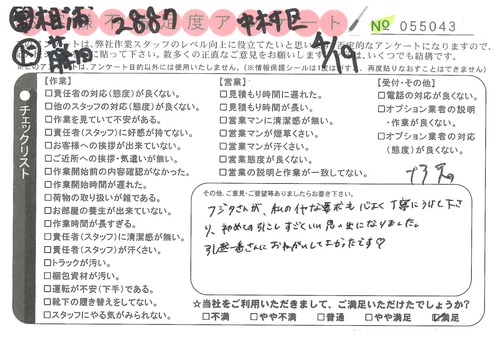 相浦 2887 中村区 ート No 055043
藤田 4/19
トは、弊社作業スタッフのレベル向上に役立てたいと思い 否定的なアンケートになりますので、
に貼って下さい。数多くの正直なご意見をお願いします は、いくつでも結構です。
※このアンケートは、アンケート目的以外には使用いたしません。(※情報保護シールは1度はがすと 再度貼りなおすことはできません)
チェックリスト
【作業】
□責任者の対応(態度)が良くない。
□他のスタッフの対応(態度)が良くない。
□作業を見ていて不安がある。
□責任者(スタッフ)に好感が持てない。
□お客様への挨拶が出来ていない。
□ご近所への挨拶・気遣いが無い。
□作業開始前の内容確認がなかった。
□作業開始時間が遅れた。
□荷物の取り扱いが雑である。
□お部屋の養生が出来ていない。
□作業時間が長すぎる。
□責任者(スタッフ)に清潔感が無い。
□責任者(スタッフ)が汗くさい。
□トラックが汚い。
□梱包資材が汚い。
□運転が不安(下手)である。
□靴下の履き替えをしてない。
□スタッフにやる気がみられない。
【営業】
□見積もり時間に遅れた。
□見積もり時間が長い。
□営業マンに清潔感が無い。
□営業マンが煙草くさい。
□営業マンが汗くさい。
□営業態度が良くない。
□営業の説明と作業が一致してない。
【受付・その他】
□電話の対応が良くない。
□オプション業者の説明
・作業が良くない。
□オプション業者の対応
(態度)が良くない。
その他、ご意見・ご要望等ありましたらお書き下さい。
フジタさんが、私の 要求も 心よく 丁寧にうけて下さ
り、初めての引こし すごくいい 思い出になりました。
引越一番さんに おねがいしてよかったです♡
☆当社をご利用いただきまして、ご満足いただけたでしょうか?
□不満 □やや不満 □普通 □やや満足 ☑満足